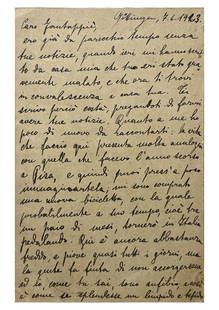 Göttingen, 7.6.1923.
Caro Fantappié,
ero già da parecchio tempo senza
tue notizie, quando ieri mi hanno scritto
da casa mia che tu eri stato gra-
vemente malato e che ora ti trovi
in convalescenza a casa tua. Ti
scrivo perciò costà, pregandoti di farmi
avere tue notizie. Quanto a me ho
poco di nuovo da raccontarti; la vita
che faccio qui presenta molta analogia
con quella che facevo l'anno scorso
a Pisa, e quindi puoi press'a poco
immaginartela; mi sono comprato
una nuova bicicletta, con la quale
probabilmente a suo tempo, cioè tra
un paio di mesi, tornerò in Italia
pedalando. Qui è ancora abbastanza
freddo e piove quasi tutti i giorni, ma
la gente fa finta di non accorgersene
ed io, come tu sai, sono anfibio,
è come se splendesse un limpido e tepido